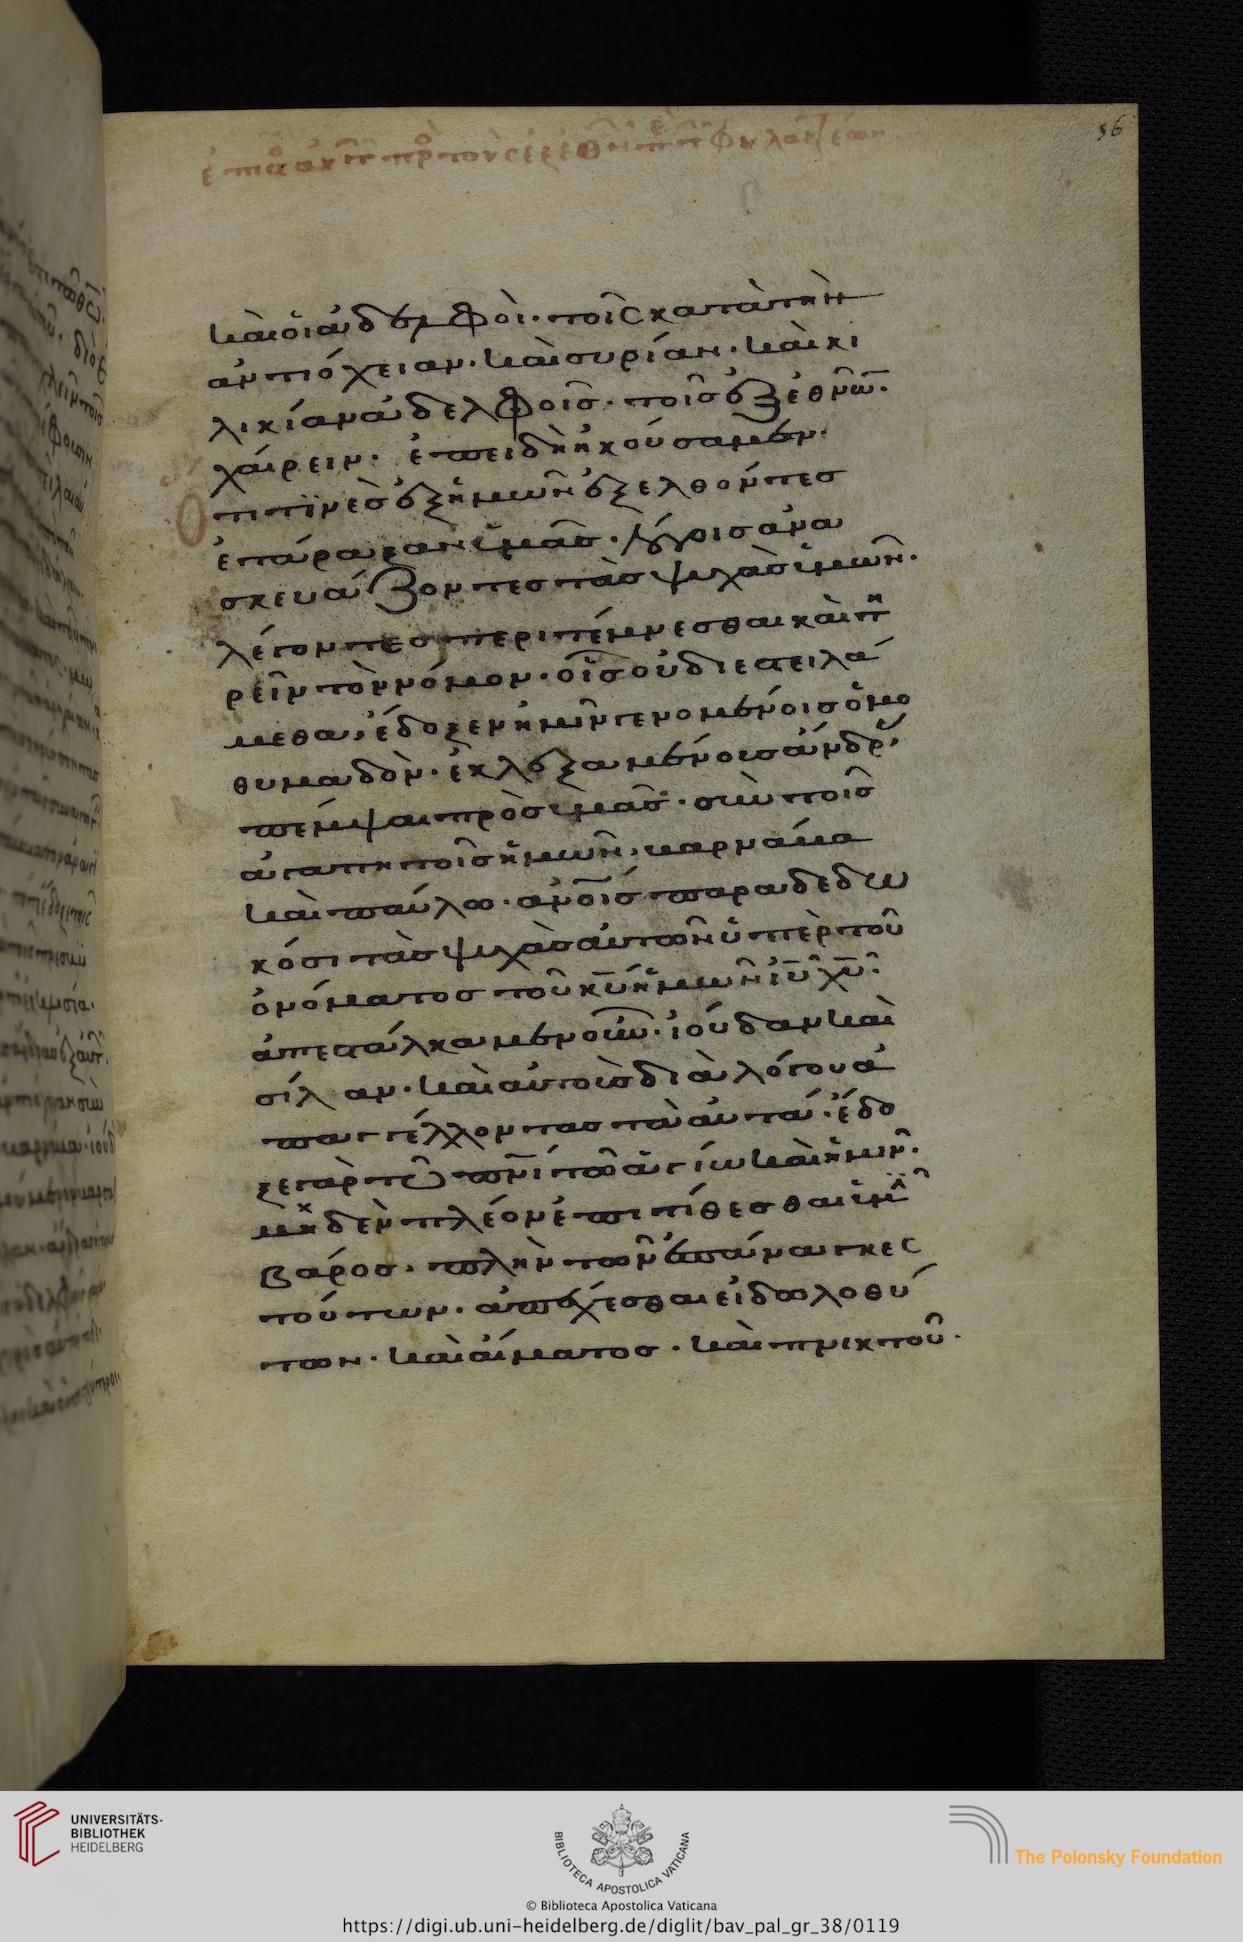 56
καὶ οἱ ἀδελφοὶ· τοῖς κατὰ τὴν
ἀντιόχειαν· καὶ συρίαν· καὶ κι
λικίαν ἀδελφοῖς· τοῖς ἐξ ἐθνῶν·
χαίρειν· ἐπειδὴ ἠκούσαμεν·
Ὅτι τινὲς ἐξ ἡμῶν ἐξελθόντες
ἐτάραξαν ὑμᾶς· λόγοις ἀνα
σκευάζοντες τὰς ψυχὰς ὑμῶν·
λέγοντες περιτέμνεσθαι καὶ τη
ρεῖν τὸν νόμον· οἷς οὐ διεστειλά
μεθα, ἔδοξεν ἡμῖν γενομένοις ὁμο
θυμαδὸν· ἐκλεξαμένοις ἄνδρ
πέμψαι πρὸς ὑμᾶς· σὺν τοῖς
ἀγαπητοῖς ἡμῶν, βαρνάβα
καὶ παύλω· ἀνοῖς παραδεδω
κόσι τὰς ψυχὰς αὐτῶν ὑπὲρ τοῦ
ὀνόματος τοῦ κ̅υ̅ ἡμῶν ι̅υ̅ χ̅υ̅·
ἀπεστάλκαμεν οὖν· ἰούδαν καὶ
σίλαν· καὶ αὐτοὺς διὰ λόγου ἀ
παγγέλλοντας τὰ αὐτά· ἔδο
ξε γὰρ τῶ πνι τῶ ἁγίω καὶ ἡμῖν·
μηδὲν πλέον ἐπιτίθεσθαι ὑμῖν
βάρος· πλὴν τῶν ἐπάναγκες
τούτων· ἀπέχεσθαι εἰδωλοθύ
των· καὶ αἵματος· καὶ πνικτοῦ·
UNIVERSITÄTS-
BIBLIOTHEK
HEIDELBERG
BIBLIOTECA APOSTOLICA VATICANA
The Polonsky Foundation
© Biblioteca Apostolica Vaticana
https://digi.ub.uni-heidelberg.de/diglit/bav_pal_gr_38/0119